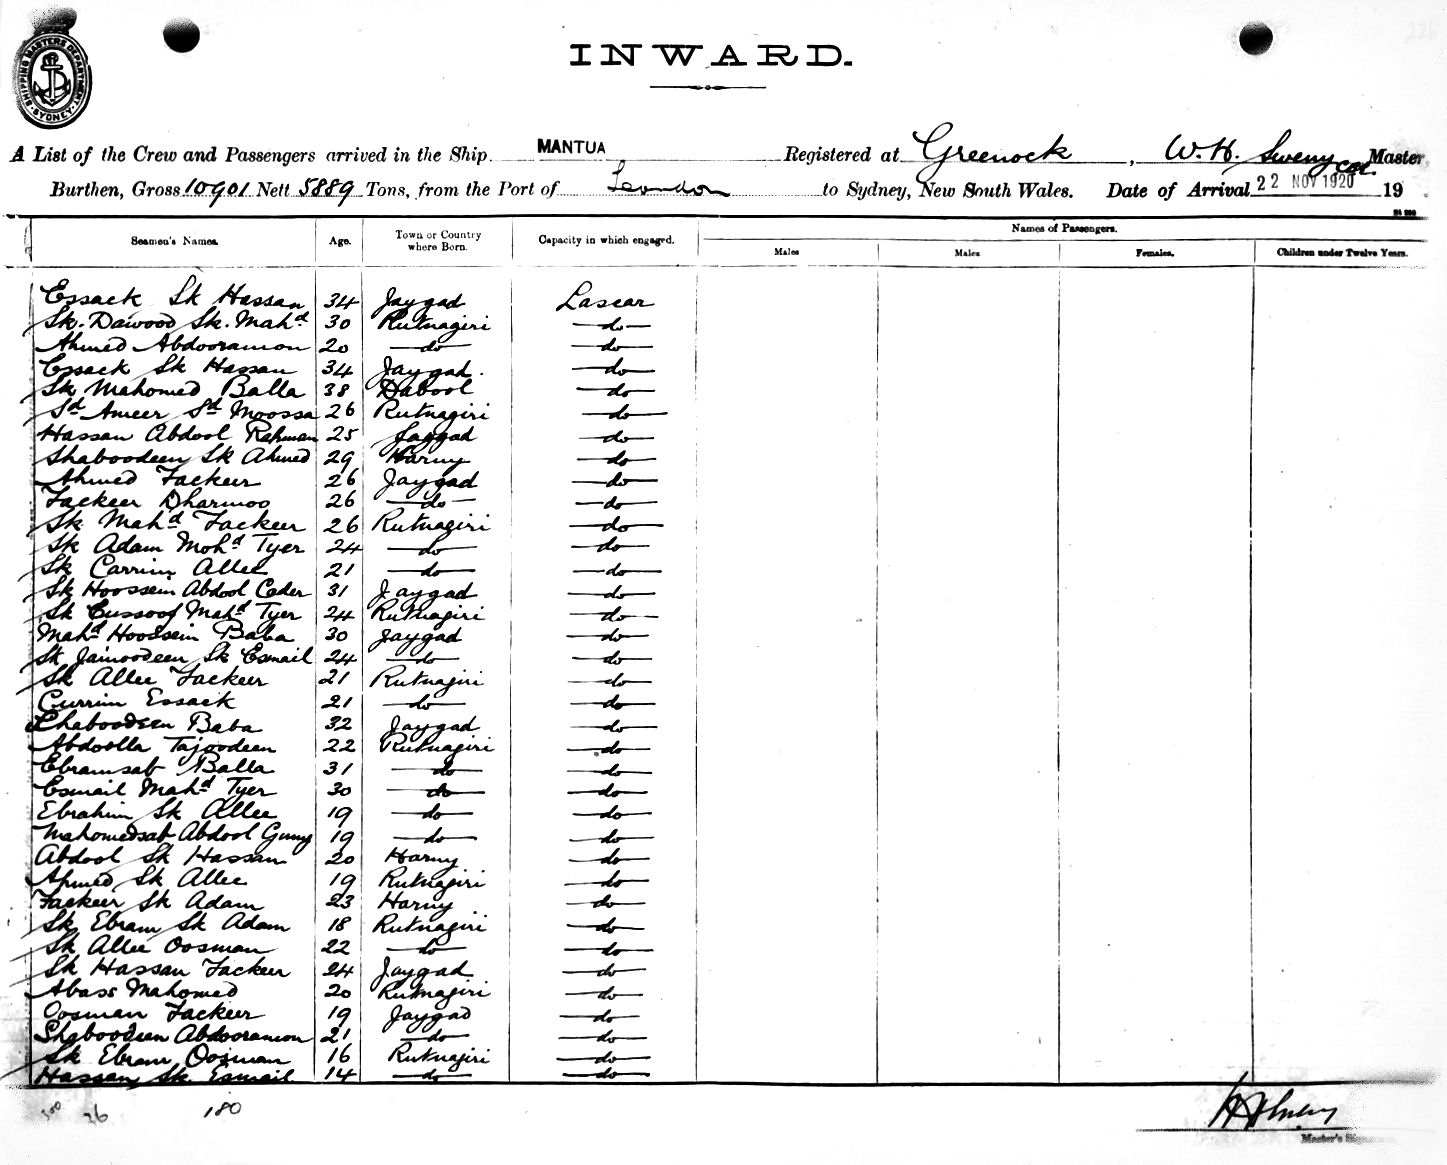 SHIPPING MASTERS DEPARTMENT SYDNEY
INWARD.
A List of the Crew and Passengers arrived in the Ship MANTUA Registered at Greenock, W.H. Sweny Master
Burthen, Gross 10901 Nett 5889 Tons, from the Port of London to Sydney, New South Wales. Date of Arrival 22 NOV 1920 19
Seamen's Names. Age. Town or Country where Born. Capacity in which engaged. Names of Passengers.
Males Males Females. Children under Twelve Years.
Essack Sk Hassan 34 Jaygad Lascar
Sk. Dawood Sk. Mahd 30 Rutnagiri do
Ahmed Abdooramon 20 do do
Essack Sk Hassan 34 Jaygad. do
Sk Mahomed Balla 38 Dabool do
Sd Ameer Sd Moossa 26 Rutnagiri do
Hassan Abdool Rahman 25 Jaygad do
Shaboodeen Sk Ahmed 29 Harny do
Ahmed Fackeer 26 Jaygad do
Fackeer Dharmoo 26 do do
Sk Mahd Fackeer 26 Rutnagiri do
Sk Adam Mohd Tyer 24 do do
Sk Carrim Allee 21 do do
Sk Hoossein Abdool Cader 31 Jaygad do
Sk Eussoof Mahd Tyer 24 Rutnagiri do
Mahd Hoossein Baba 30 Jaygad do
Sk Jainoodeen Sk Esmail 24 do do
Sk Allee Fackeer 21 Rutnagiri do
Currim Essack 21 do do
Shaboodeen Baba 32 Jaygad do
Abdoolla Tajoodeen 22 Rutnagiri do
Ebramsab Balla 31 do do
Esmail Mahd Tyer 30 do do
Ebrahim Sk Allee 19 do do
Mahomedsab Abdool Guny 19 do do
Abdool Sk Hassan 20 Harny do
Ahmed Sk Allee 19 Rutnagiri do
Fackeer Sk Adam 23 Harny do
Sk Ebram Sk Adam 18 Rutnagiri do
Sk Allee Oosman 22 do do
Sk Hassan Fackeer 24 Jaygad do
Abass Mahomed 20 Rutnagiri do
Oosman Fackeer 19 Jaygad do
Shaboodeen Abdooramon 21 do do
Sk Ebram Oosman 16 Rutnagiri do
Hassan Sk Esmail 14 do do
36 180
Master's